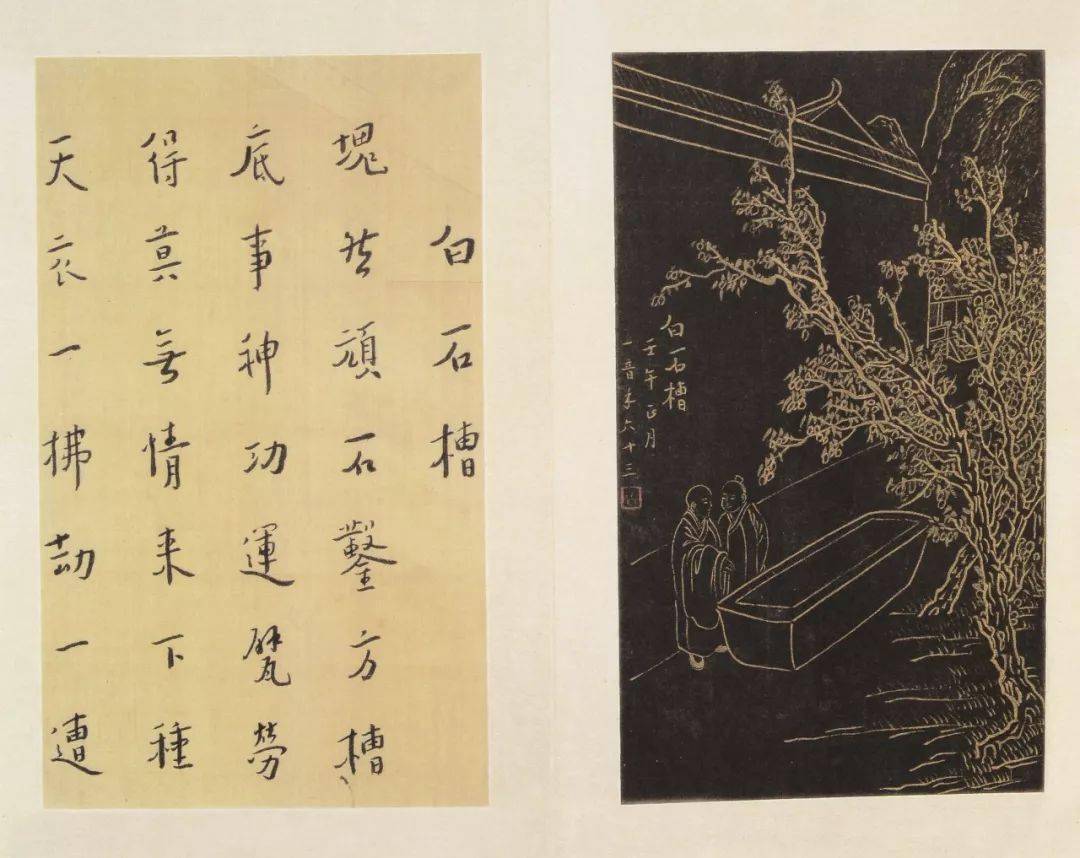 白石槽
壬午正月
一音年六十三
白石槽
塊然頑石鑿方槽
底事神功運甓勞
得莫無情来下種
天衣一拂劫一遭